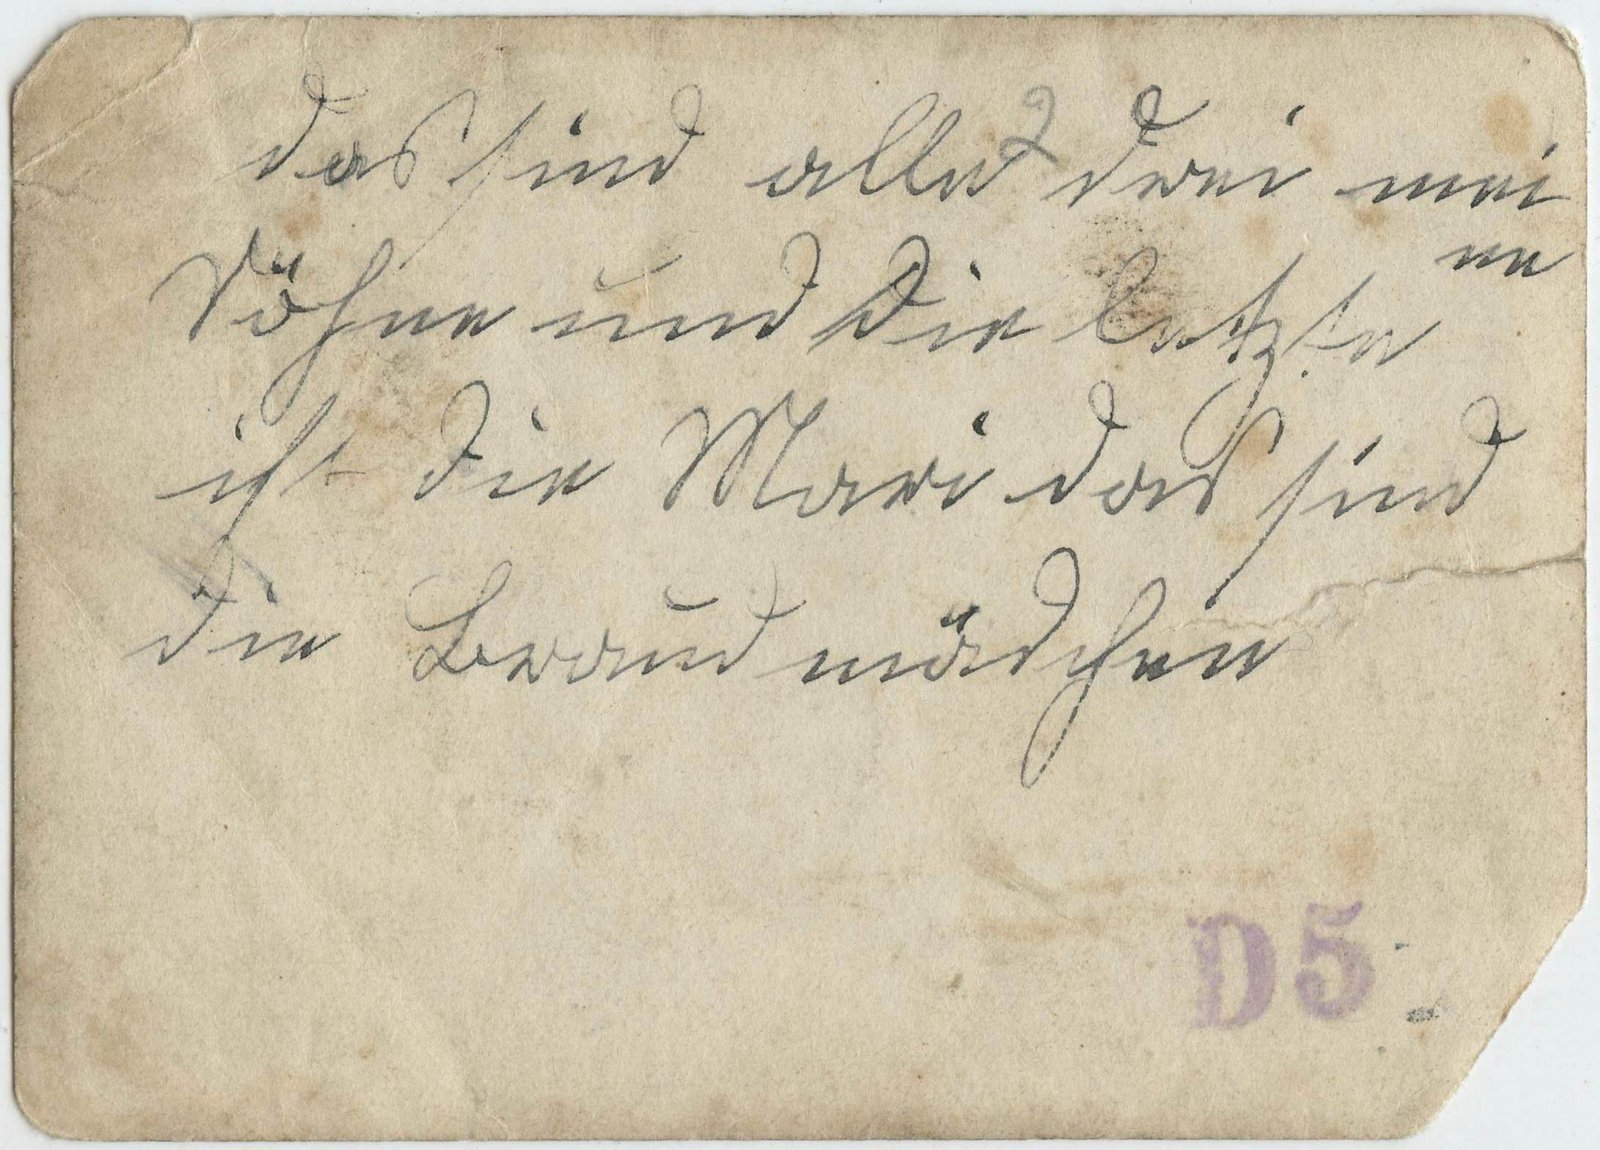 das sind alle 2 drei mei
ne
Söhne und die letzte
ist die Mari das sind
die Braudmädchen
D5